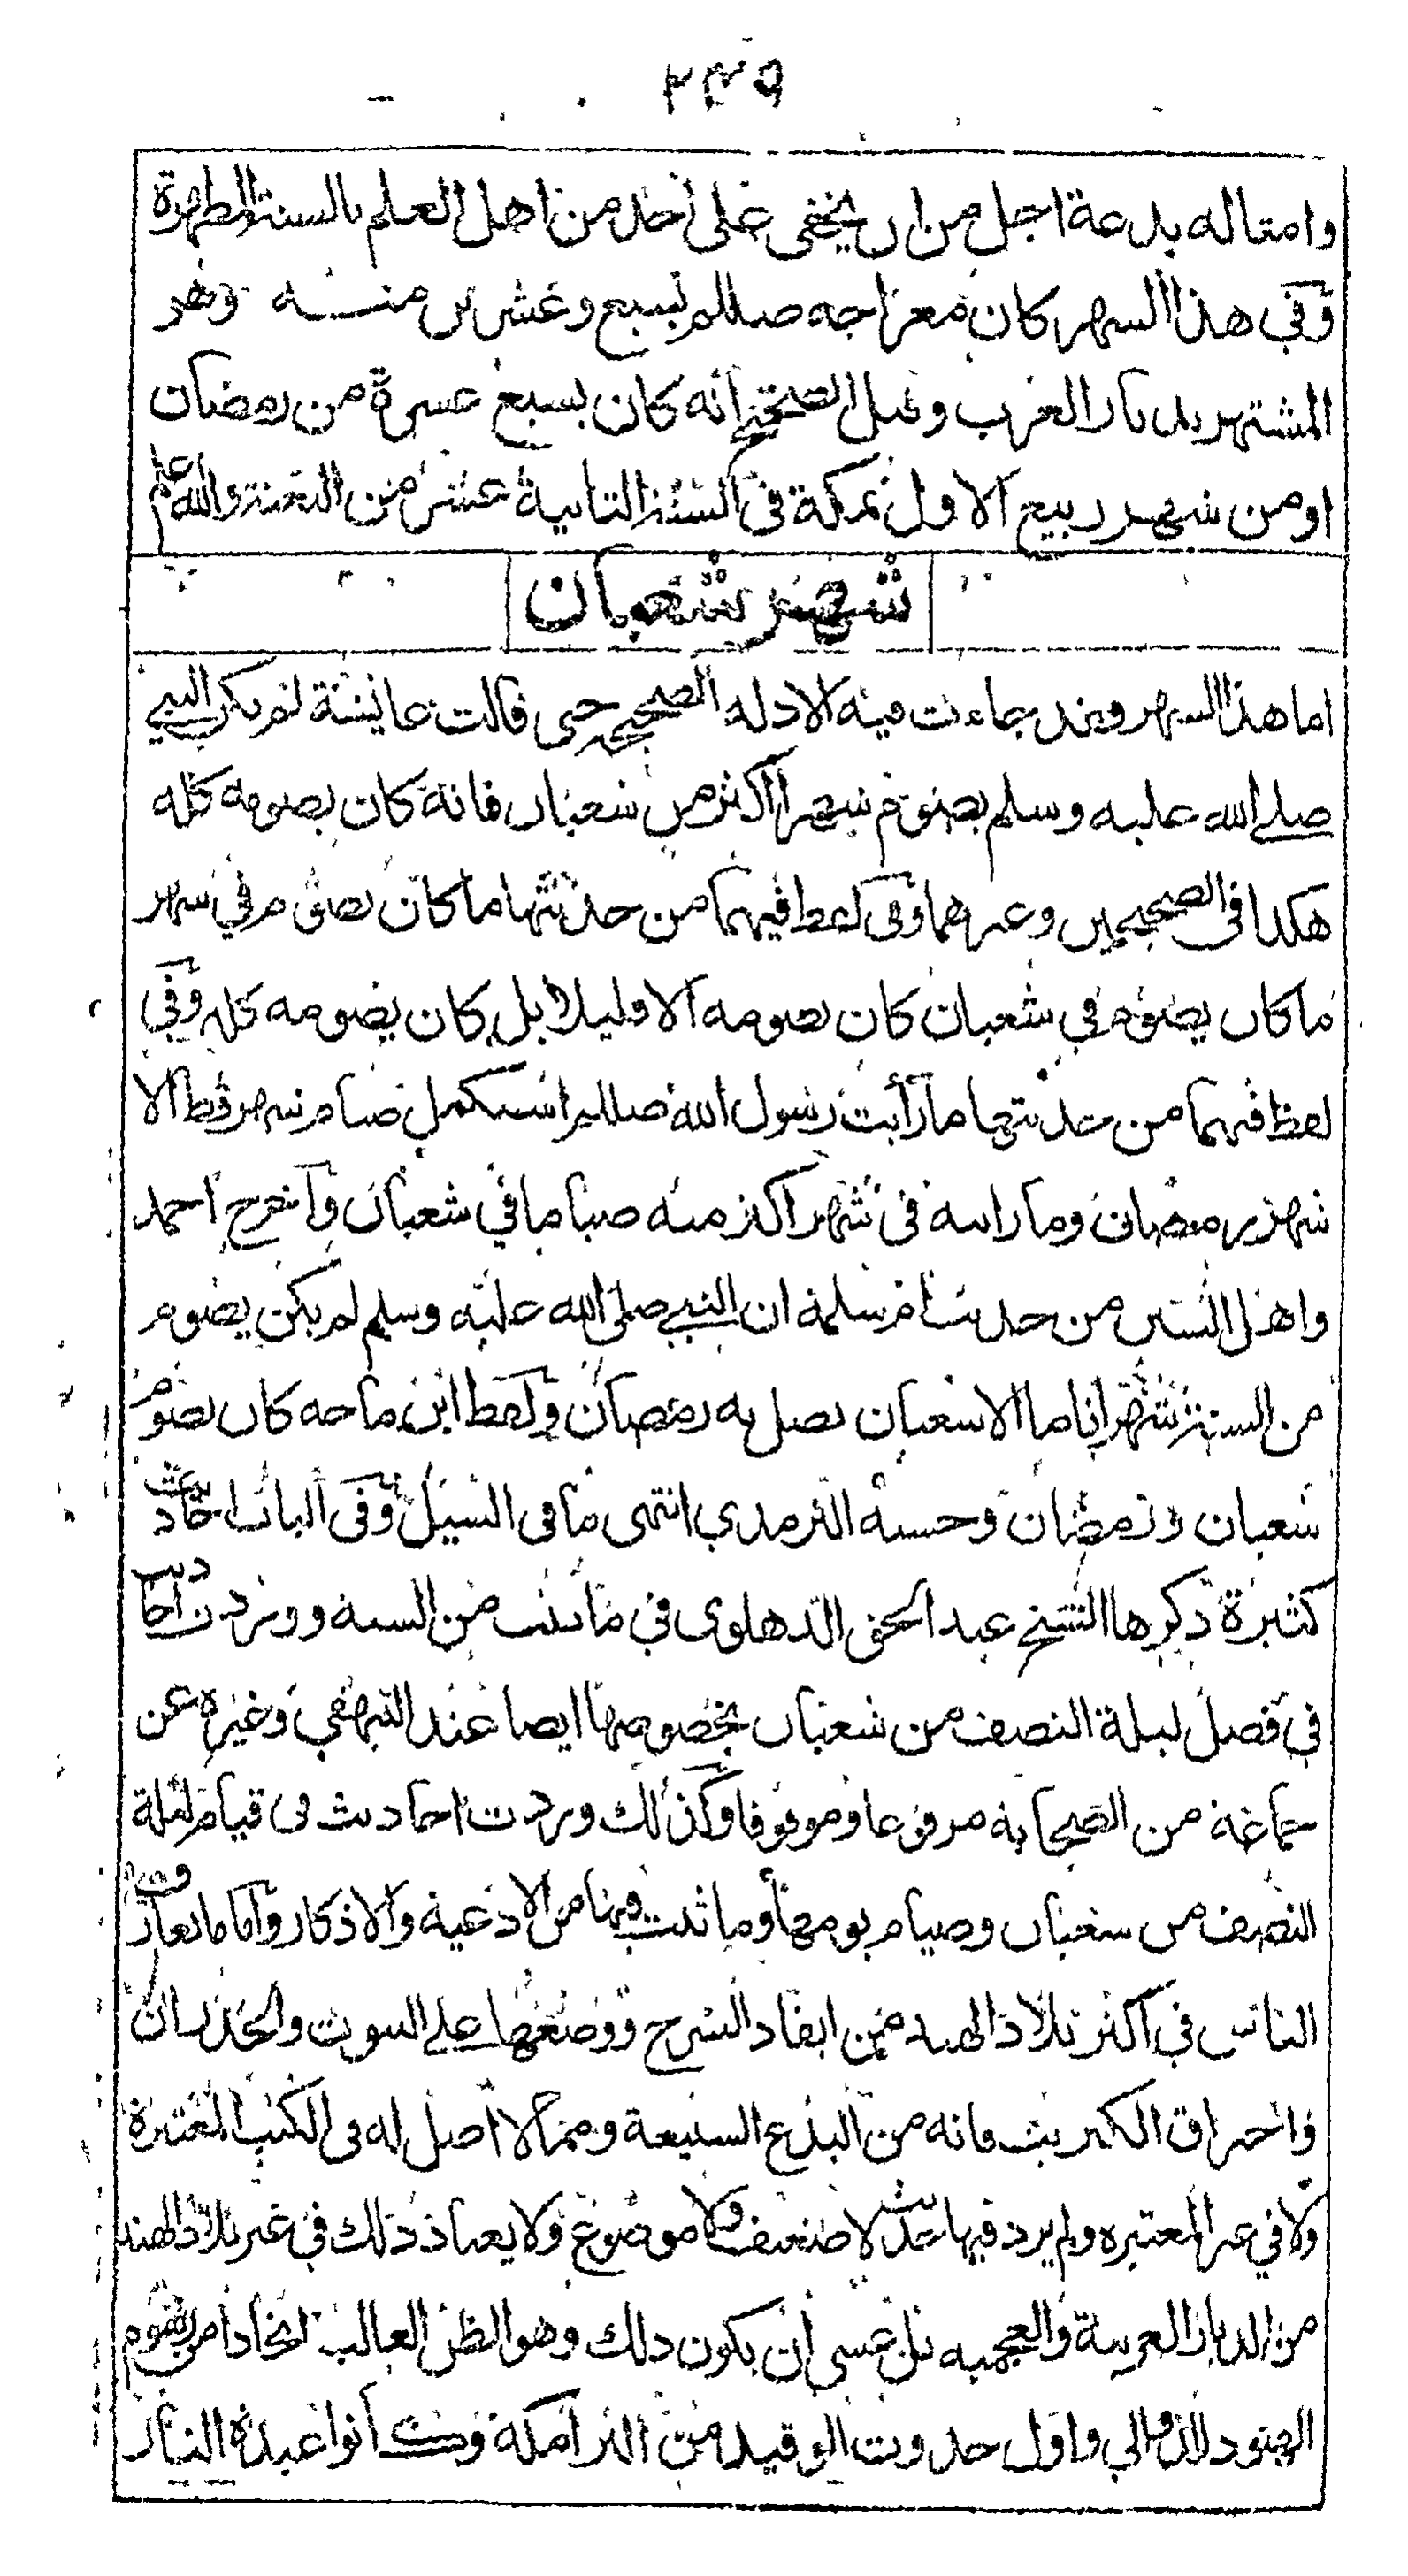 ٢٣٩
وامثاله بدعة اجل من ان يخفى على احد من اهل العلم بالسنة المطهرة
وفي هذا الشهر كان معراجه صللم لسبع وعشرين منه وهو
المشتهر بديار العرب وقيل الصحيح انه كان بسبع عشرة من رمضان
او من شهر ربيع الاول بمكة في السنة الثانية عشر من البعثة والله اعلم
شهر شعبان
اما هذا الشهر وقد جاءت فيه الادلة الصحيحة حتى قالت عايشة لم يكن النبي
صلى الله عليه وسلم يصوم شهرا اكثر من شعبان فانه كان يصومه كله
هكذا في الصحيحين وغيرهما وفي لفظ فيهما من حديثها ما كان يصوم في شهر
ما كان يصوم في شعبان كان يصومه الا قليلا بل كان يصومه كله وفي
لفظ فيهما من حديثها ما رأيت رسول الله صللم استكمل صيام شهر قط الا
شهر رمضان وما رايته في شهر اكثر منه صياما في شعبان وآخرج احمد
واهل السنن من حديث ام سلمة ان النبي صلى الله عليه وسلم لم يكن يصوم
من السنة شهرا تاما الا شعبان يصل به رمضان ولفظ ابن ماجه كان يصوم
شعبان ورمضان وحسنه الترمذي انتهى ما في السيل وفي الباب احاديث
كثيرة ذكرها الشيخ عبد الحق الدهلوي في ما ثبت من السنة ووردت احاديث
في فضل ليلة النصف من شعبان بخصوصها ايضا عند البيهقي وغيره عن
جماعة من الصحابة مرفوعا وموقوفا وكذلك وردت احاديث في قيام ليلة
النصف من شعبان وصيام يومها وما ثبت فيها من الادعية والاذكار واما ما تعارف
الناس في اكثر بلاد الهند من ايقاد السرج ووضعها على البيوت والجدران
واحراق الكبريت فانه من البدع الشنيعة ومما لا اصل له في الكتب المعتبرة
ولا في غير المعتبره ولم يرد فيها حديث لا ضعيف ولا موضوع ولا يعتاد ذلك في غير بلاد الهند
من الديار العربية والعجمية بل عسى ان يكون ذلك وهو الظن الغالب اتخاذا من رسوم
الهنود الدوالي واول حدوث الوقيد من البرامكة وكانوا عبدة النار